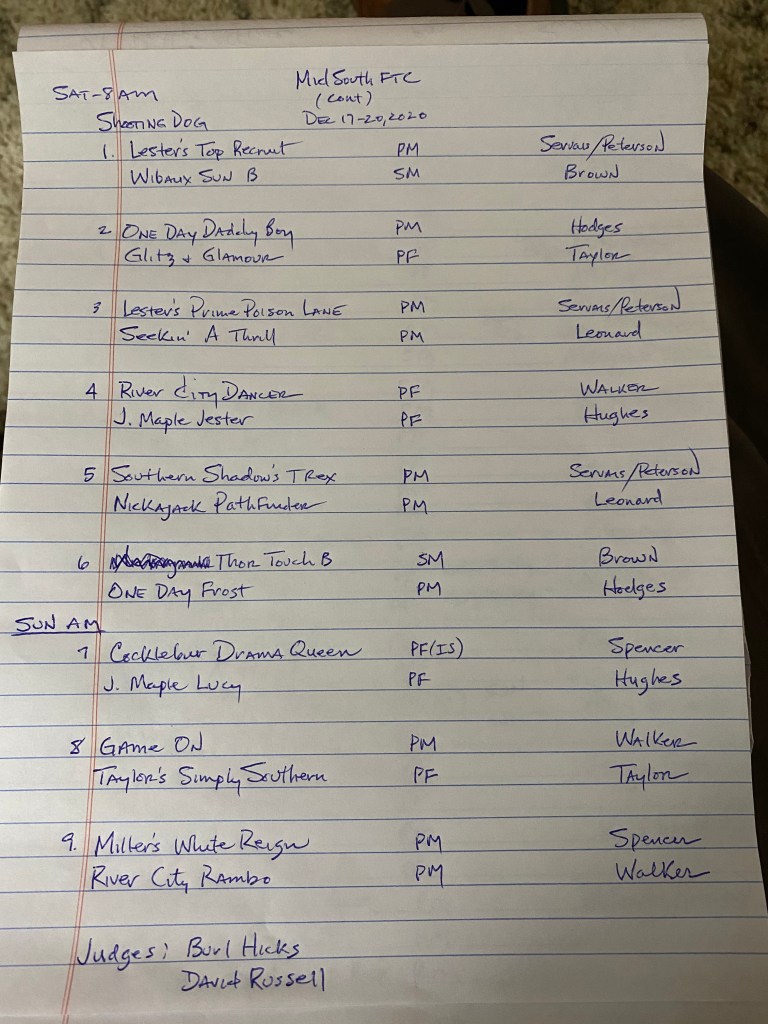 SAT-8AM
Mid South FTC
(cont)
Dec 17-20, 2020
Shooting Dog
1. Lester's Top Recruit PM Servais/Peterson
Wibaux Sun B SM Brown
2 One Day Daddy Boy PM Hodges
Glitz + Glamour PF Taylor
3 Lester's Prime Poison Lane PM Servais/Peterson
Seekin' A Thrill PM Leonard
4 River City Dancer PF Walker
J. Maple Jester PF Hughes
5 Southern Shadow's T Rex PM Servais/Peterson
Nickajack Pathfinder PM Leonard
6 Thor Touch B SM Brown
One Day Frost PM Hodges
SUN AM
7 Cocklebur Drama Queen PF(IS) Spencer
J. Maple Lucy PF Hughes
8 Game On PM Walker
Taylor's Simply Southern PF Taylor
9. Miller's White Reign PM Spencer
River City Rambo PM Walker
Judges: Burl Hicks
David Russell